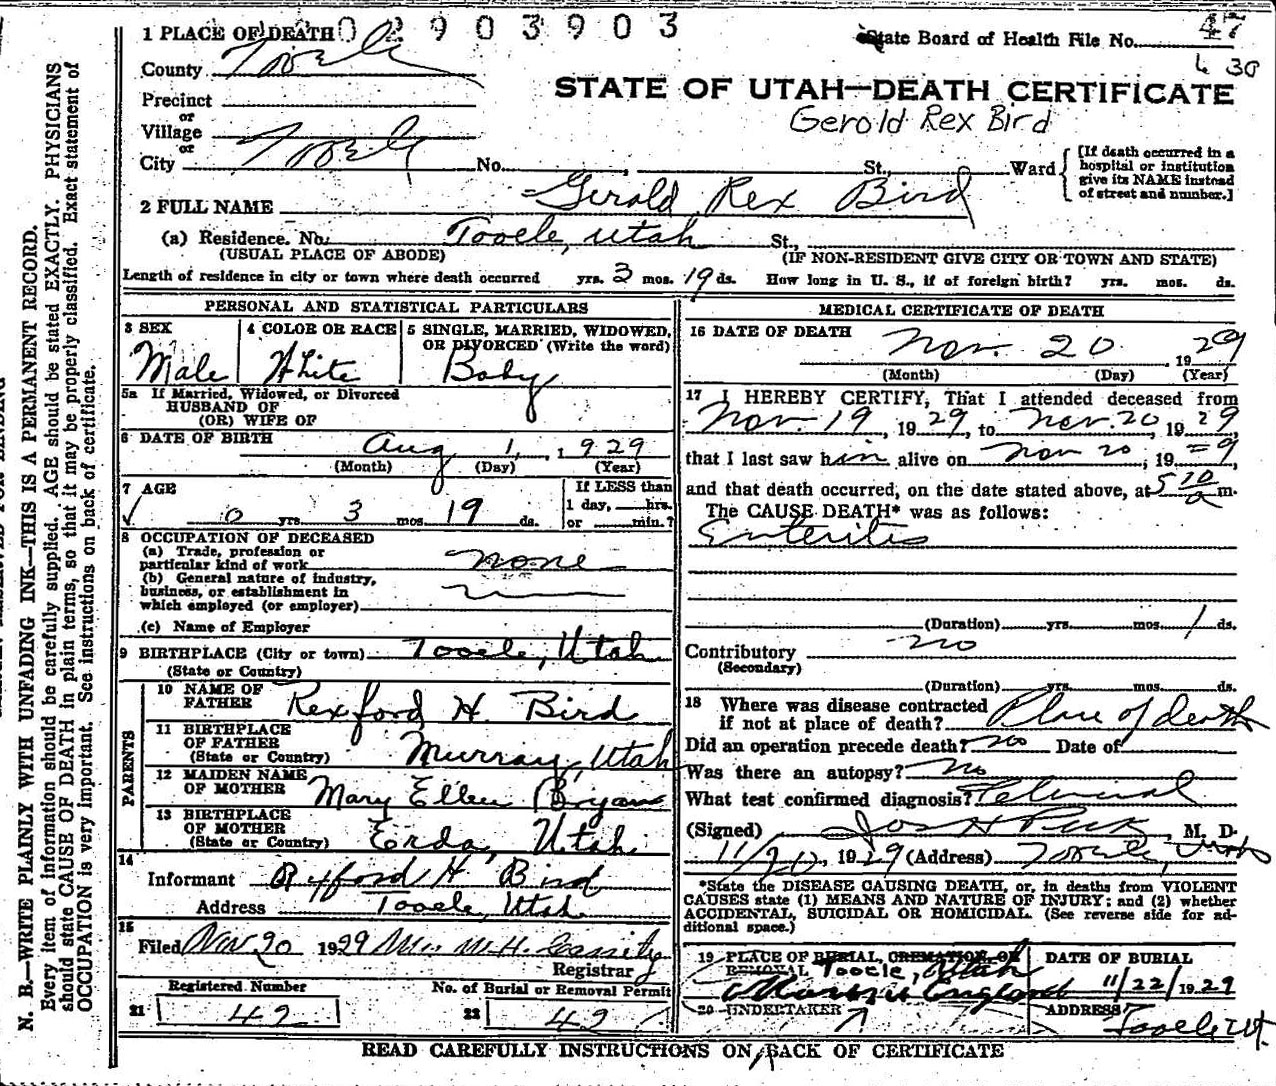 02903903
1 PLACE OF DEATH
State Board of Health File No. 47
County Tooele
L 30
STATE OF UTAH—DEATH CERTIFICATE
Precinct
or
Gerold Rex Bird
Village
or
City Tooele No. , St., Ward [If death occurred in a hospital or institution give its NAME instead of street and number.]
2 FULL NAME Gerold Rex Bird
(a) Residence. No. Tooele, Utah St.,
(USUAL PLACE OF ABODE) (IF NON-RESIDENT GIVE CITY OR TOWN AND STATE)
Length of residence in city or town where death occurred yrs. 3 mos. 19 ds. How long in U. S., if of foreign birth? yrs. mos. ds.
PERSONAL AND STATISTICAL PARTICULARS
3 SEX 4 COLOR OR RACE 5 SINGLE, MARRIED, WIDOWED,
OR DIVORCED (Write the word)
Male White Baby
5a If Married, Widowed, or Divorced
HUSBAND OF
(OR) WIFE OF
6 DATE OF BIRTH Aug 1, 1929
(Month) (Day) (Year)
7 AGE If LESS than
1 day, hrs.
0 yrs. 3 mos. 19 ds. or min.?
8 OCCUPATION OF DECEASED
(a) Trade, profession or
particular kind of work none
(b) General nature of industry,
business, or establishment in
which employed (or employer)
(c) Name of Employer
9 BIRTHPLACE (City or town) Tooele, Utah
(State or Country)
PARENTS
10 NAME OF
FATHER Rexford H. Bird
11 BIRTHPLACE
OF FATHER
(State or Country) Murray, Utah
12 MAIDEN NAME
OF MOTHER Mary Ellen Bryan
13 BIRTHPLACE
OF MOTHER
(State or Country) Erda, Utah
14
Informant Rexford H. Bird
Address Tooele, Utah
15
Filed Nov 20 1929 Mrs M. H. Cassity
Registrar
Registered Number No. of Burial or Removal Permit
21 42 22 42
MEDICAL CERTIFICATE OF DEATH
16 DATE OF DEATH Nov. 20 1929
(Month) (Day) (Year)
17 I HEREBY CERTIFY, That I attended deceased from
Nov. 19, 1929, to Nov. 20, 1929,
that I last saw him alive on Nov 20, 19=9,
and that death occurred, on the date stated above, at 5 10 a m.
The CAUSE DEATH* was as follows:
Enteritis
(Duration) yrs. mos. 1 ds.
Contributory no
(Secondary)
(Duration) yrs. mos. ds.
18 Where was disease contracted
if not at place of death? Place of death
Did an operation precede death? no Date of
Was there an autopsy? no
What test confirmed diagnosis?
(Signed) Jos H Peck, M. D.
11/20, 1929 (Address) Tooele, Utah
*State the DISEASE CAUSING DEATH, or, in deaths from VIOLENT
CAUSES state (1) MEANS AND NATURE OF INJURY; and (2) whether
ACCIDENTAL, SUICIDAL OR HOMICIDAL. (See reverse side for ad-
ditional space.)
19 PLACE OF BURIAL, CREMATION, OR DATE OF BURIAL
REMOVAL Tooele, Utah
England 11/22/1929
20 UNDERTAKER ADDRESS
Tooele Ut.
READ CAREFULLY INSTRUCTIONS ON BACK OF CERTIFICATE
N. B.—WRITE PLAINLY WITH UNFADING INK—THIS IS A PERMANENT RECORD.
Every item of information should be carefully supplied. AGE should be stated EXACTLY. PHYSICIANS
should state CAUSE OF DEATH in plain terms, so that it may be properly classified. Exact statement of
OCCUPATION is very important. See instructions on back of certificate.